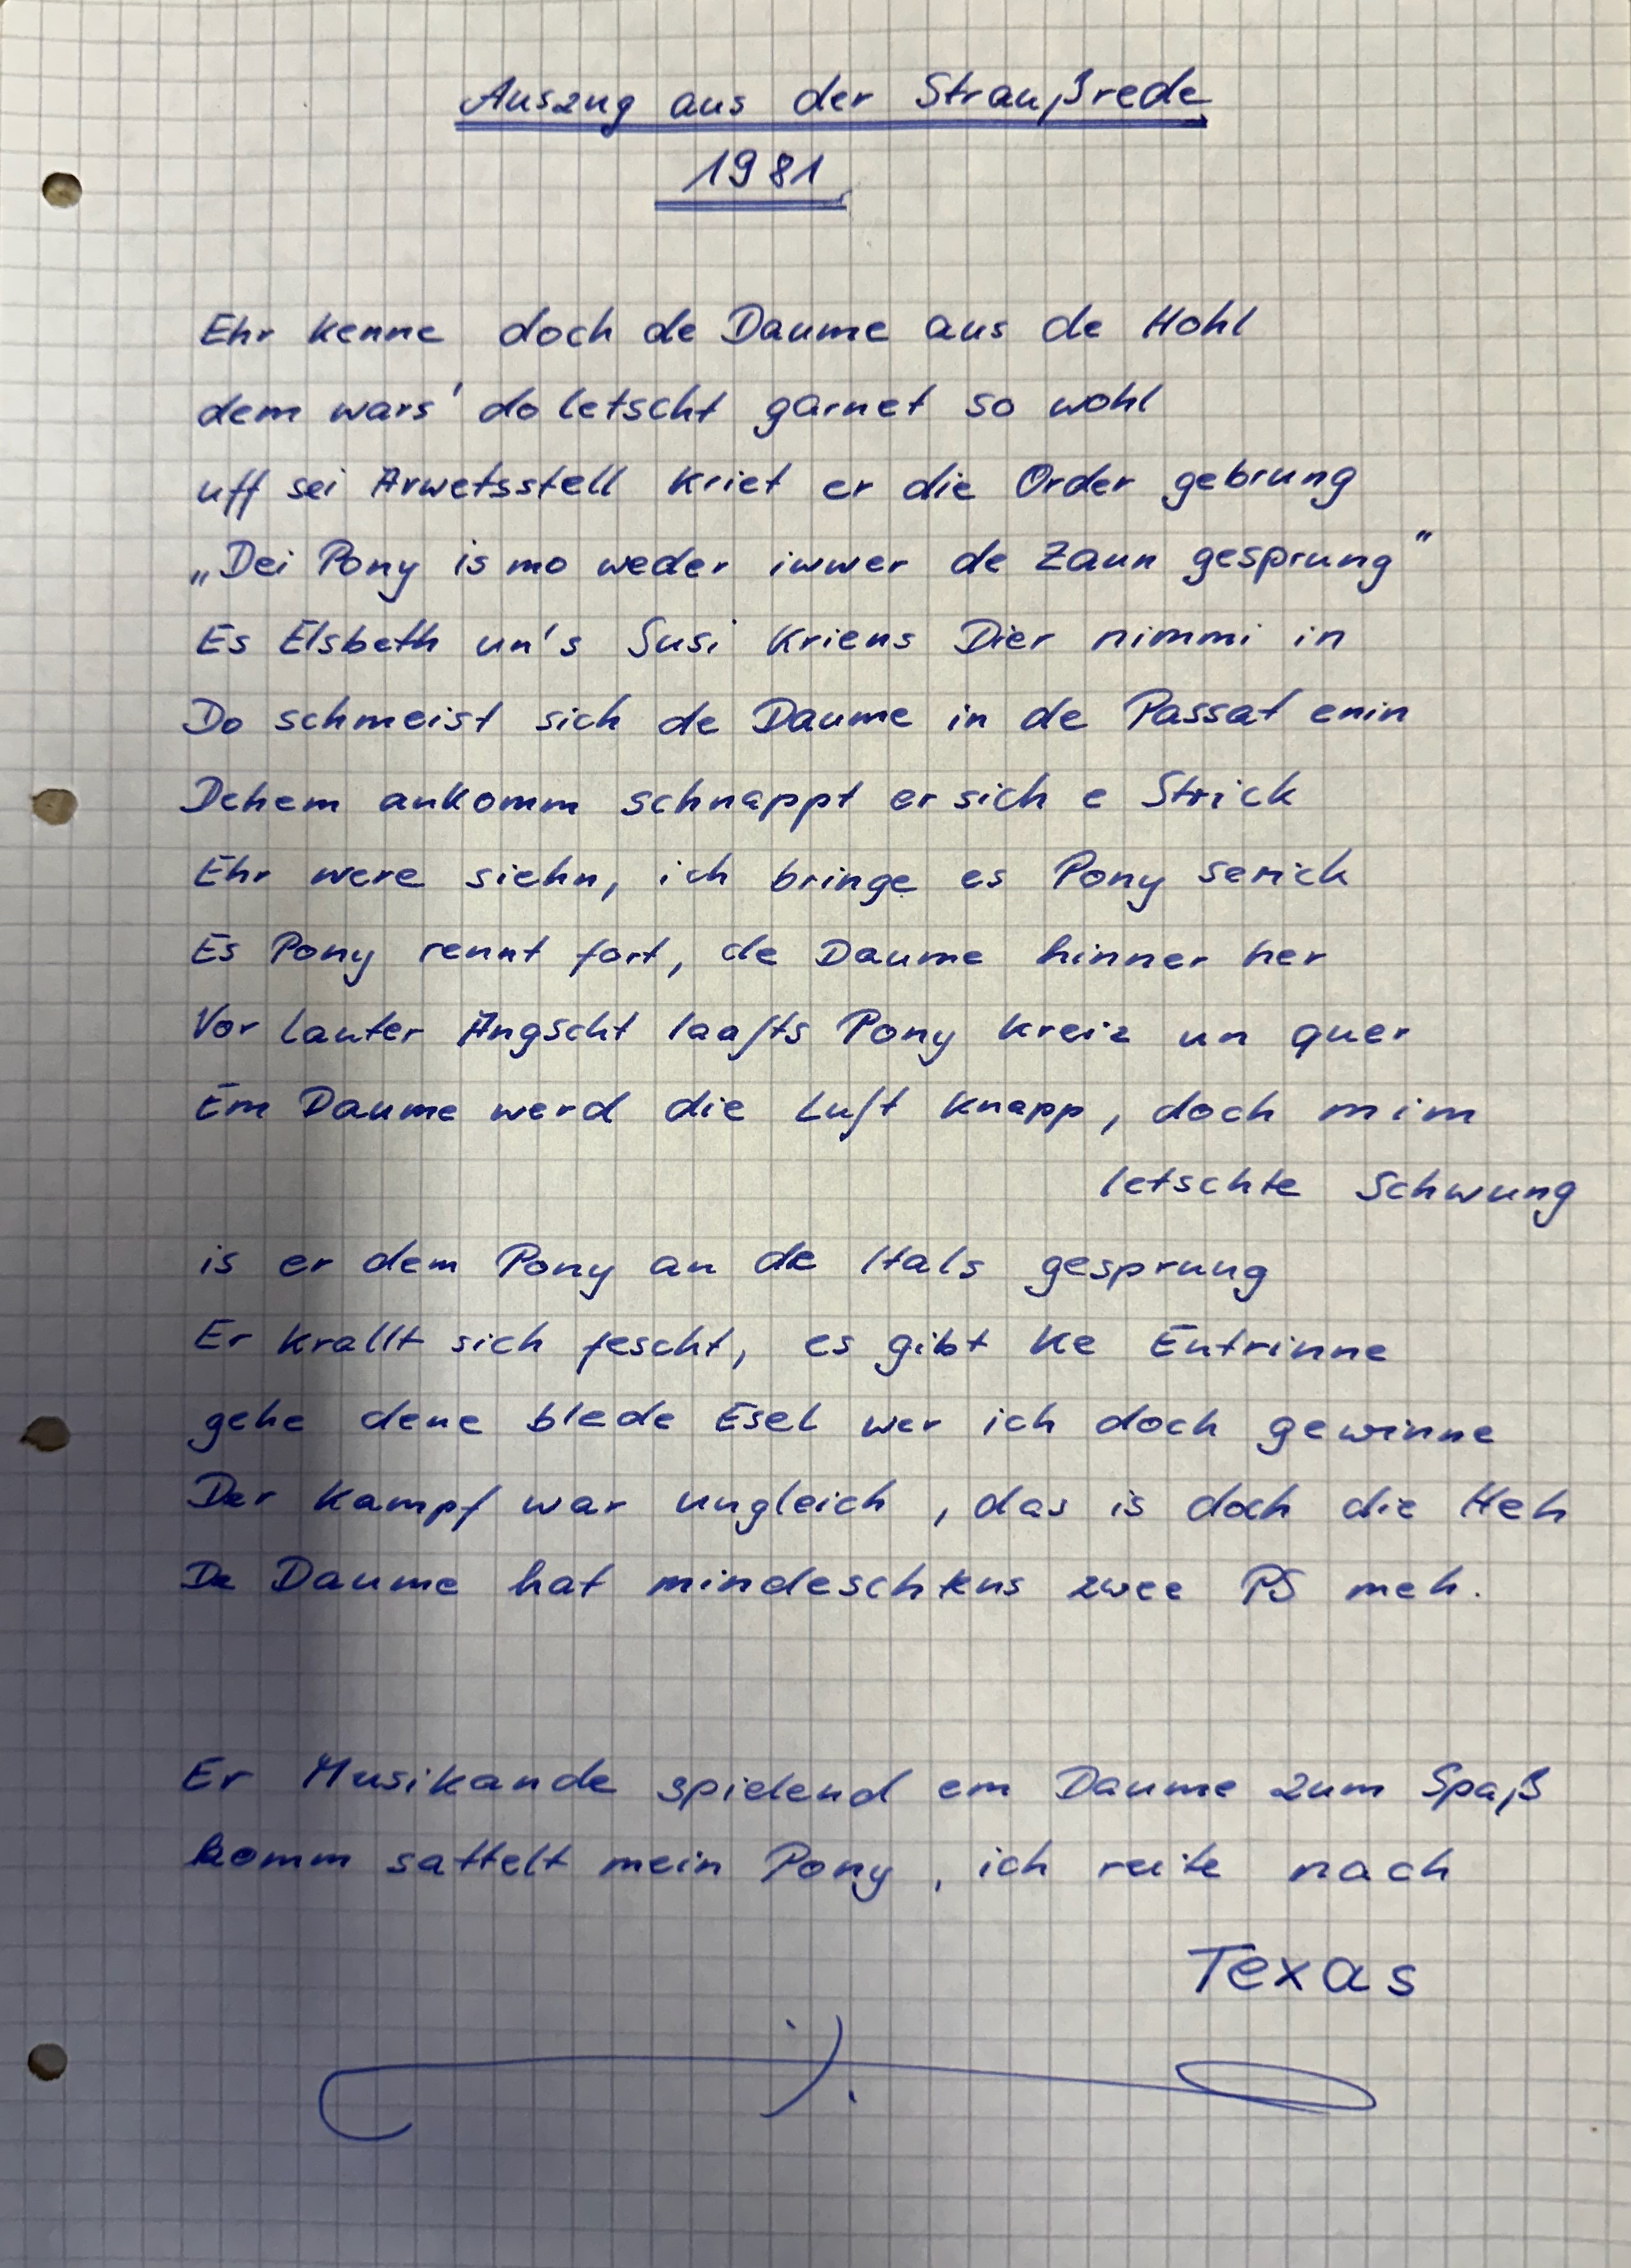 Auszug aus der Straußrede
1981
Ehr kenne doch de Daume aus de Hohl
dem wars' do letscht garnet so wohl
uff sei Arwetsstell kriet er die Order gebrung
„Dei Pony is mo weder iwwer de Zaun gesprung"
Es Elsbeth un's Susi kriens Dier nimmi in
Do schmeist sich de Daume in de Passat enin
Dehem ankomm schnappt er sich e Strick
Ehr were siehn, ich bringe es Pony serick
Es Pony rennt fort, de Daume hinner her
Vor lauter Angscht laafts Pony kreiz un quer
Em Daume werd die Luft knapp, doch mim
letschte Schwung
is er dem Pony an de Hals gesprung
Er krallt sich fescht, es gibt ke Entrinne
gehe dene blede Esel wer ich doch gewinne
Der Kampf war ungleich, das is doch die Heh
De Daume hat mindeschtens zwee PS meh.
Er Musikande spielend em Daume zum Spaß
komm sattelt mein Pony, ich reite nach
Texas